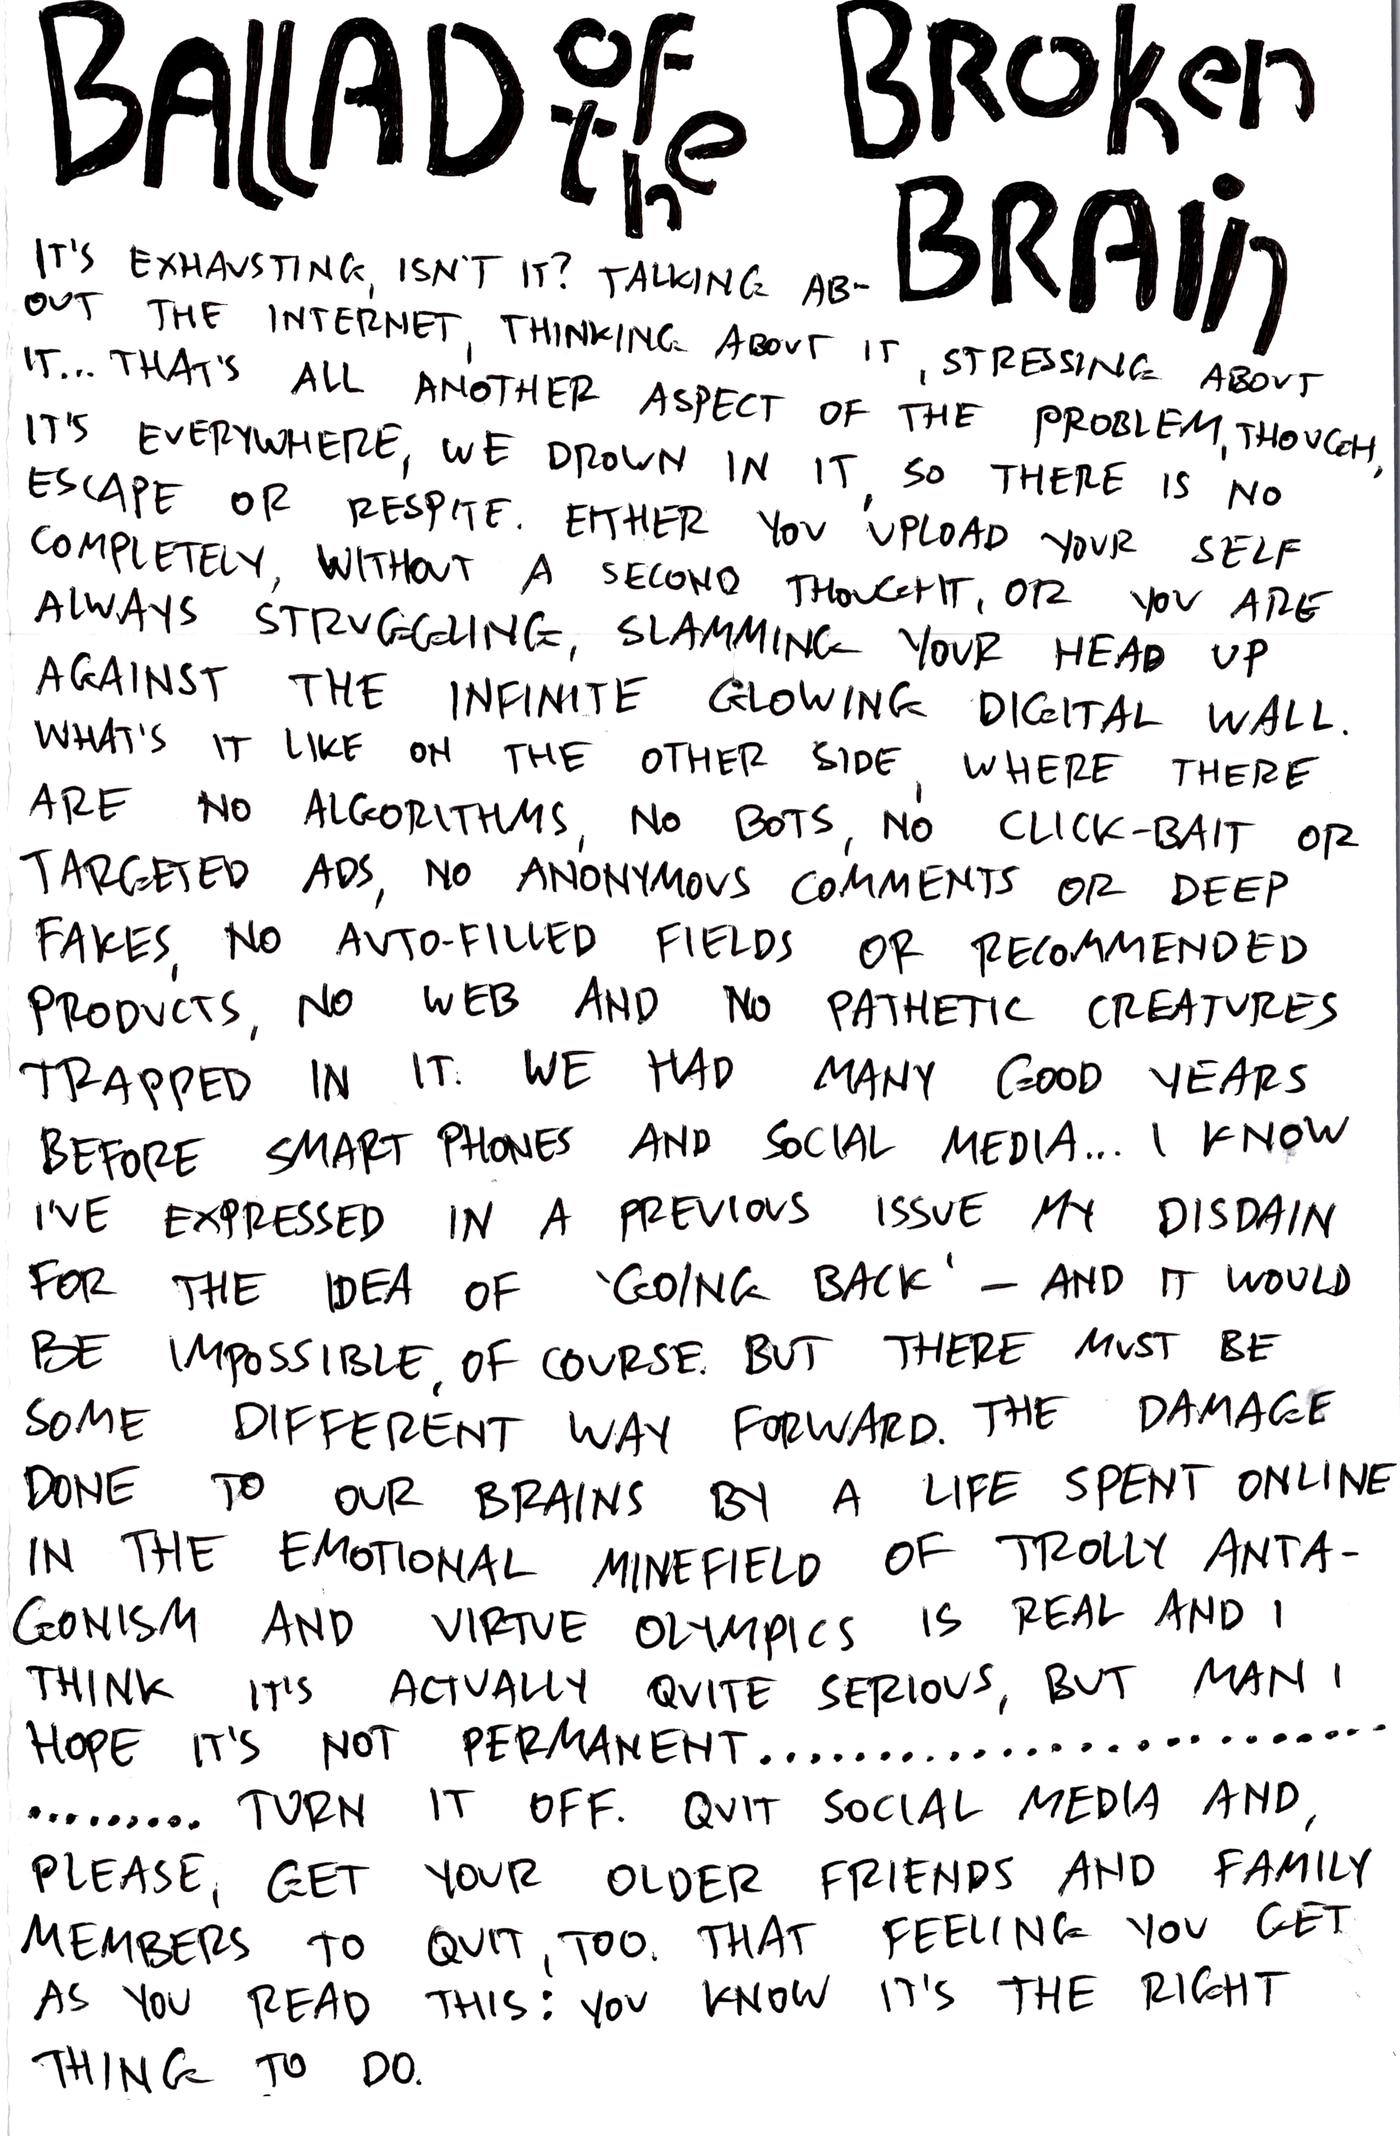 BALLAD of the BROKEN BRAIN
IT'S EXHAUSTING, ISN'T IT? TALKING AB-
OUT THE INTERNET, THINKING ABOUT IT, STRESSING ABOUT
IT... THAT'S ALL ANOTHER ASPECT OF THE PROBLEM, THOUGH,
IT'S EVERYWHERE, WE DROWN IN IT, SO THERE IS NO
ESCAPE OR RESPITE. EITHER YOU UPLOAD YOUR SELF
COMPLETELY, WITHOUT A SECOND THOUGHT, OR YOU ARE
ALWAYS STRUGGLING, SLAMMING YOUR HEAD UP
AGAINST THE INFINITE GLOWING DIGITAL WALL.
WHAT'S IT LIKE ON THE OTHER SIDE, WHERE THERE
ARE NO ALGORITHMS, NO BOTS, NO CLICK-BAIT OR
TARGETED ADS, NO ANONYMOUS COMMENTS OR DEEP
FAKES, NO AUTO-FILLED FIELDS OR RECOMMENDED
PRODUCTS, NO WEB AND NO PATHETIC CREATURES
TRAPPED IN IT. WE HAD MANY GOOD YEARS
BEFORE SMART PHONES AND SOCIAL MEDIA... I KNOW
I'VE EXPRESSED IN A PREVIOUS ISSUE MY DISDAIN
FOR THE IDEA OF 'GOING BACK' – AND IT WOULD
BE IMPOSSIBLE, OF COURSE. BUT THERE MUST BE
SOME DIFFERENT WAY FORWARD. THE DAMAGE
DONE TO OUR BRAINS BY A LIFE SPENT ONLINE
IN THE EMOTIONAL MINEFIELD OF TROLLY ANTA-
GONISM AND VIRTUE OLYMPICS IS REAL AND I
THINK IT'S ACTUALLY QUITE SERIOUS, BUT MAN I
HOPE IT'S NOT PERMANENT........................
......... TURN IT OFF. QUIT SOCIAL MEDIA AND,
PLEASE, GET YOUR OLDER FRIENDS AND FAMILY
MEMBERS TO QUIT, TOO. THAT FEELING YOU GET
AS YOU READ THIS: YOU KNOW IT'S THE RIGHT
THING TO DO.